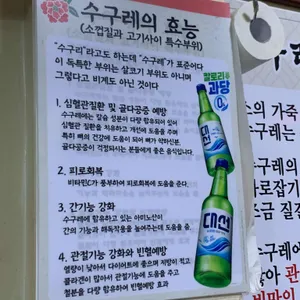 수구레의 효능
(소껍질과 고기사이 특수부위)
"수구리"라고도 하는데 "수구레"가 표준어다
이 독특한 부위는 살코기 부위도 아니며
그렇다고 비계도 아닌 것이다
1. 심혈관질환 및 골다공증 예방
수구레에는 칼슘 성분이 다량 함유되어 있어
심혈관 질환을 치유하고 개선에 도움을 주며
특히 뼈의 건강에 도움이 되어 뼈가 약하신분
골다공증이 걱정되시는 분들에게 좋은 음식입니다
2. 피로회복
비타민C가 풍부하여 피로회복에 도움을 준다.
3. 간기능 강화
수구레에 함유하고 있는 아미노산이
간의 기능과 해독작용을 높여주는데 도움을 줌.
4. 관절기능 강화와 빈혈예방
열량이 낮아서 다이어트에 좋으며 지방이 적고
콜라겐이 많아서 관절기능에 도움을 주고
철분을 다량 함유하여 빈혈예방
과당
대선
대선
소의 가죽
수구레는
수구레에